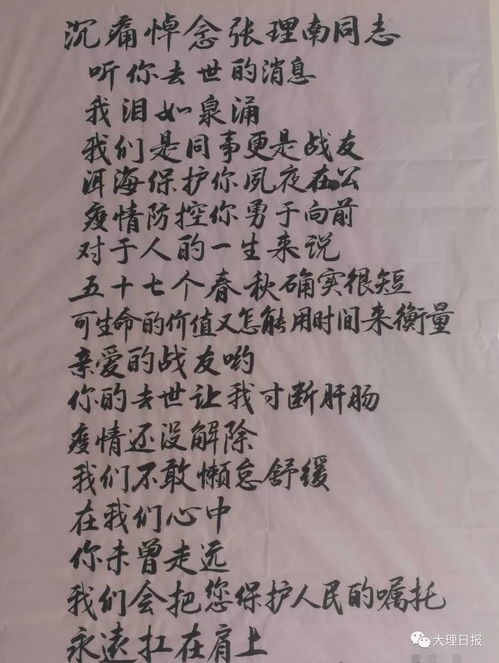 沉痛悼念张理南同志
听你去世的消息
我泪如泉涌
我们是同事更是战友
洱海保护你夙夜在公
疫情防控你勇于向前
对于人的一生来说
五十七个春秋确实很短
可生命的价值又怎能用时间来衡量
亲爱的战友哟
你的去世让我寸断肝肠
疫情还没解除
我们不敢懒怠舒缓
在我们心中
你未曾走远
我们会把您保护人民的嘱托
永远扛在肩上
大理日报